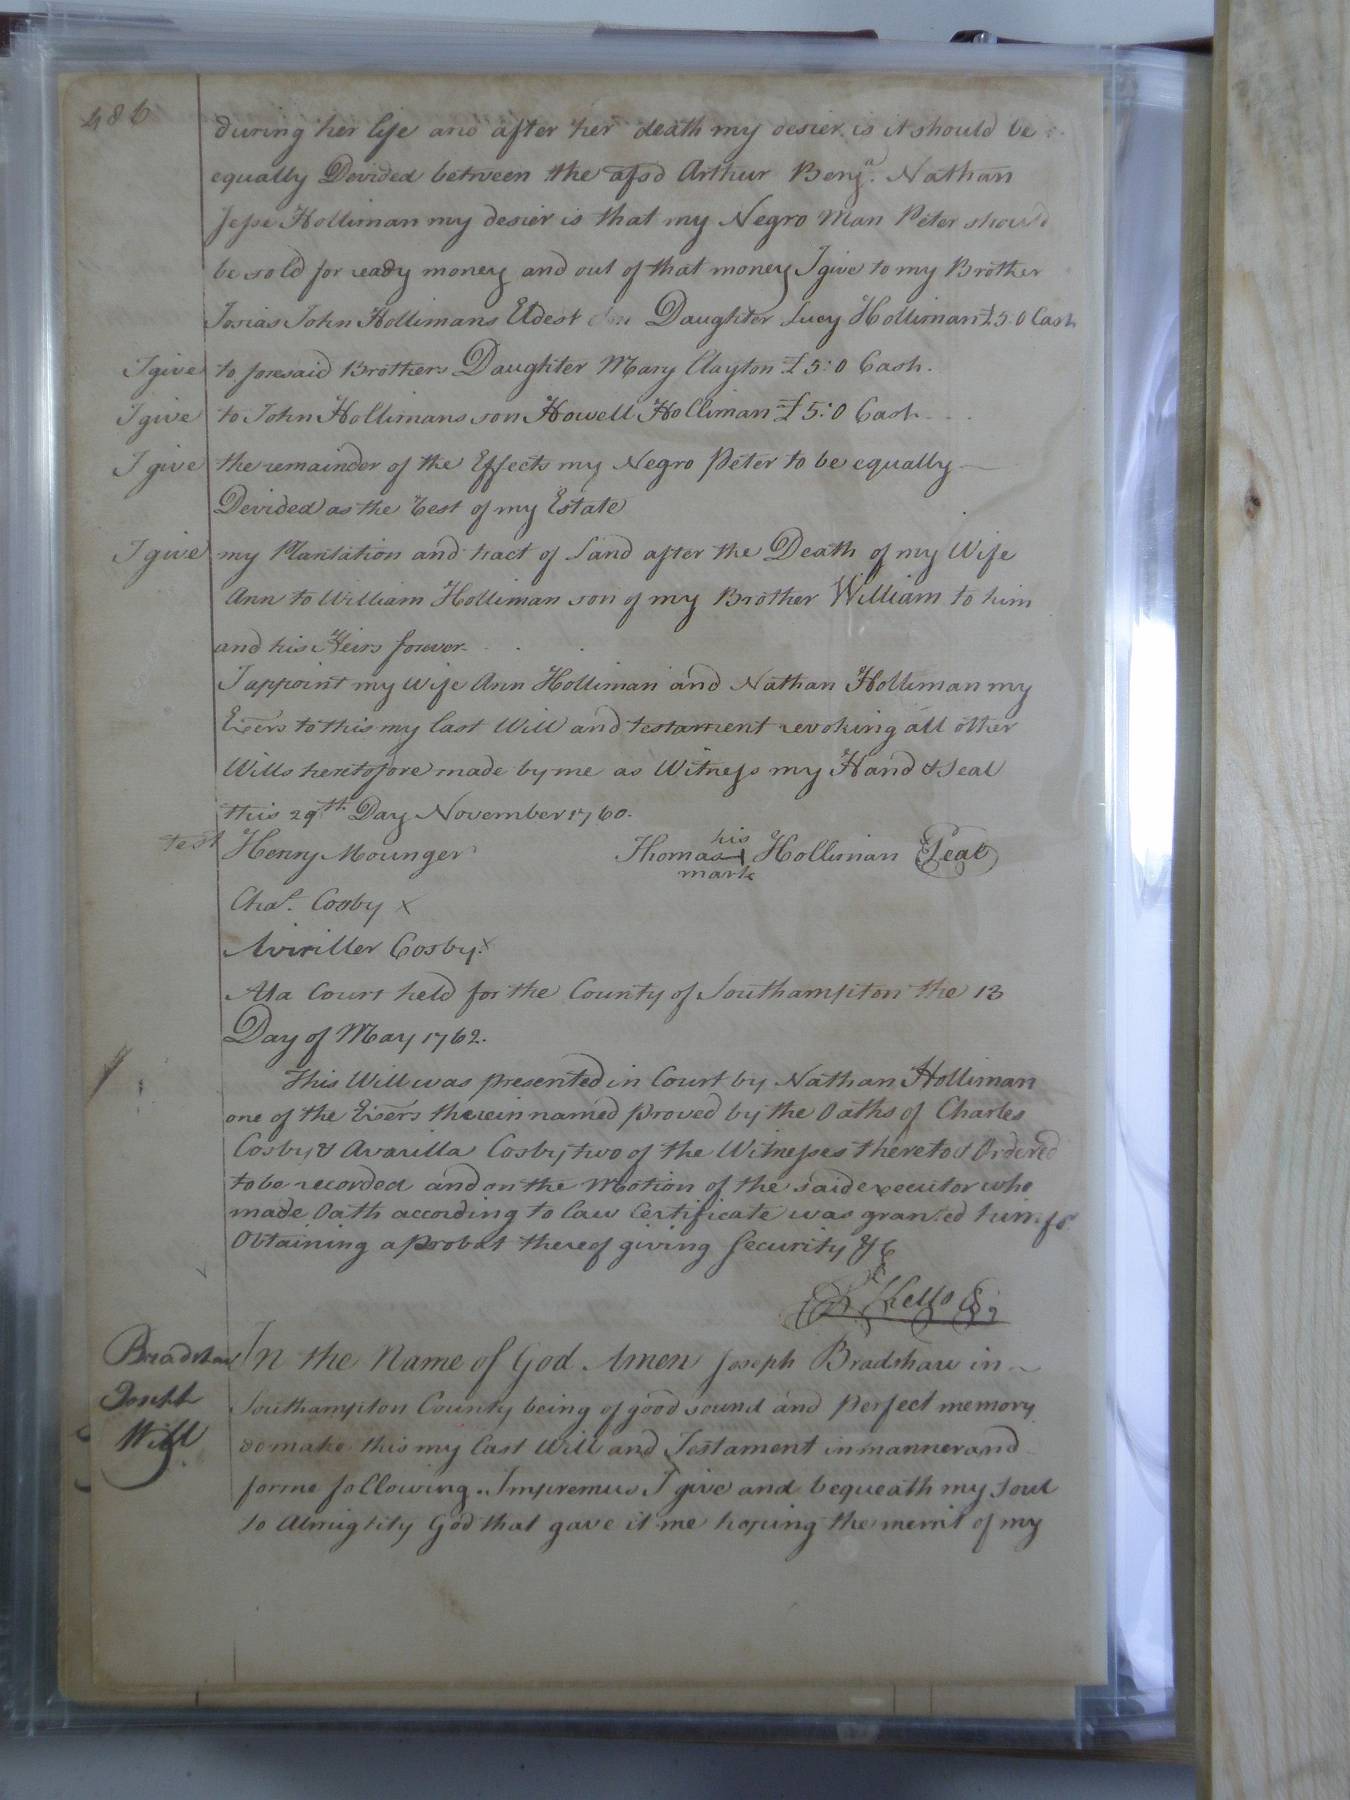 486
during her life and after her death my desier is it should be
equally Devided between the afsd Arthur Benja. Nathan
Jesse Holliman my desier is that my Negro Man Peter should
be sold for ready money and out of that money I give to my Brother
Josias John Hollimans Eldest Daughter Lucy Holliman £5.0 Cash
I give to foresaid Brothers Daughter Mary Clayton £5:0 Cash.
I give to John Hollimans son Howell Holliman £5:0 Cash
I give the remainder of the Effects my Negro Peter to be equally
Devided as the rest of my Estate
I give my Plantation and tract of Land after the Death of my Wife
Ann to William Holliman son of my Brother William to him
and his Heirs forever.
I appoint my Wife Ann Holliman and Nathan Holliman my
Exers to this my last Will and testament revoking all other
Wills heretofore made by me as Witness my Hand & Seal
this 29th Day November 1760.
test Henry Mounger Thomas his mark Holliman Seal
Chas. Cosby X
Aviriller Cosby X
At a Court held for the County of Southampton the 13
Day of May 1762.
This Will was presented in Court by Nathan Holliman
one of the Exers therein named proved by the Oaths of Charles
Cosby & Avarilla Cosby two of the Witnesses thereto & Ordered
to be recorded and on the Motion of the said executor who
made Oath according to law Certificate was granted him for
Obtaining a probat thereof giving Security &c
Kello
Bradshaw In the Name of God Amen Joseph Bradshaw in
Joseph Southampton County being of good sound and perfect memory
Will do make this my last Will and Testament in manner and
forme following. Impremus I give and bequeath my soul
to Almighty God that gave it me hoping the merrit of my